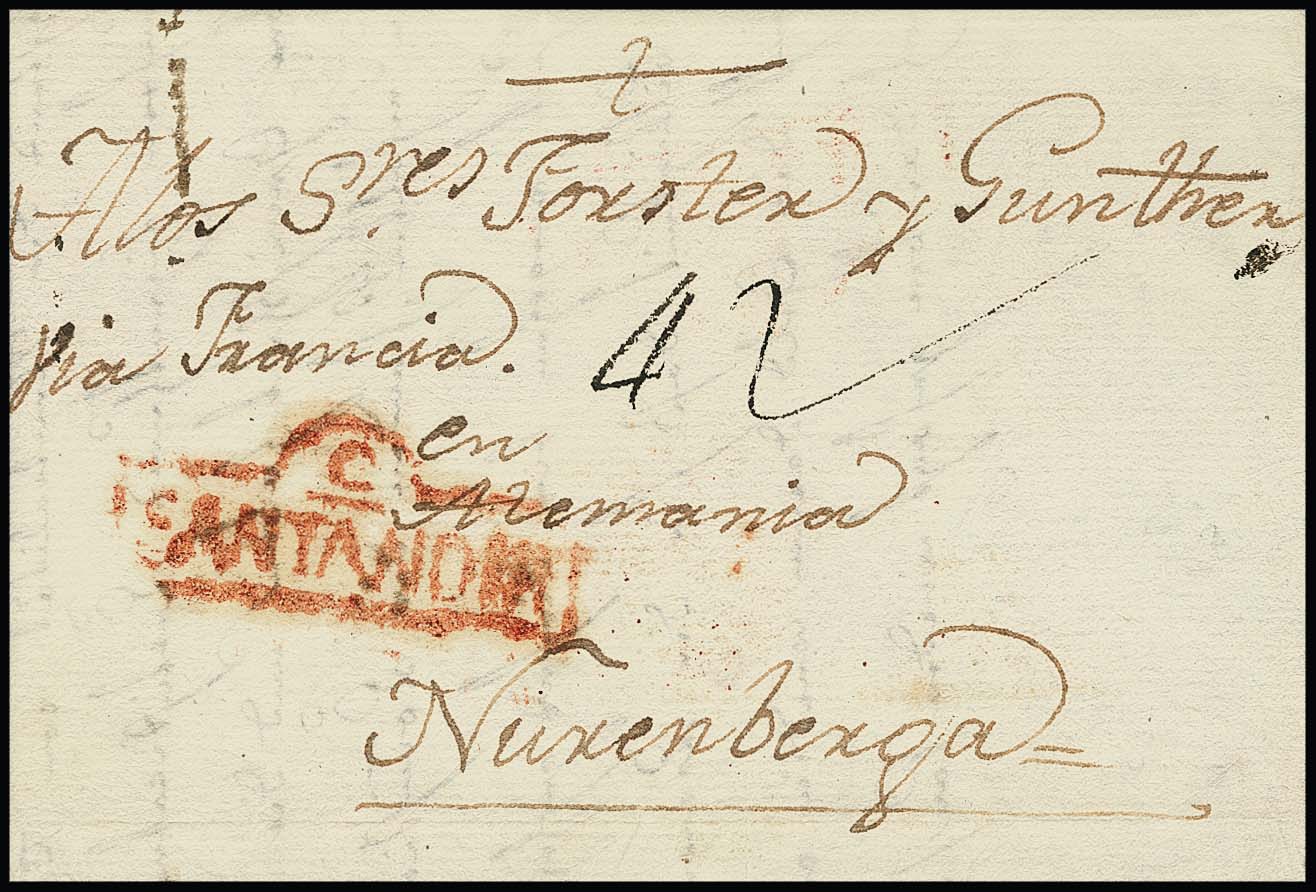 A los S.res Forster y Gunther
via Francia.
42
en
Alemania
C
SANTANDER
Nurenberga=